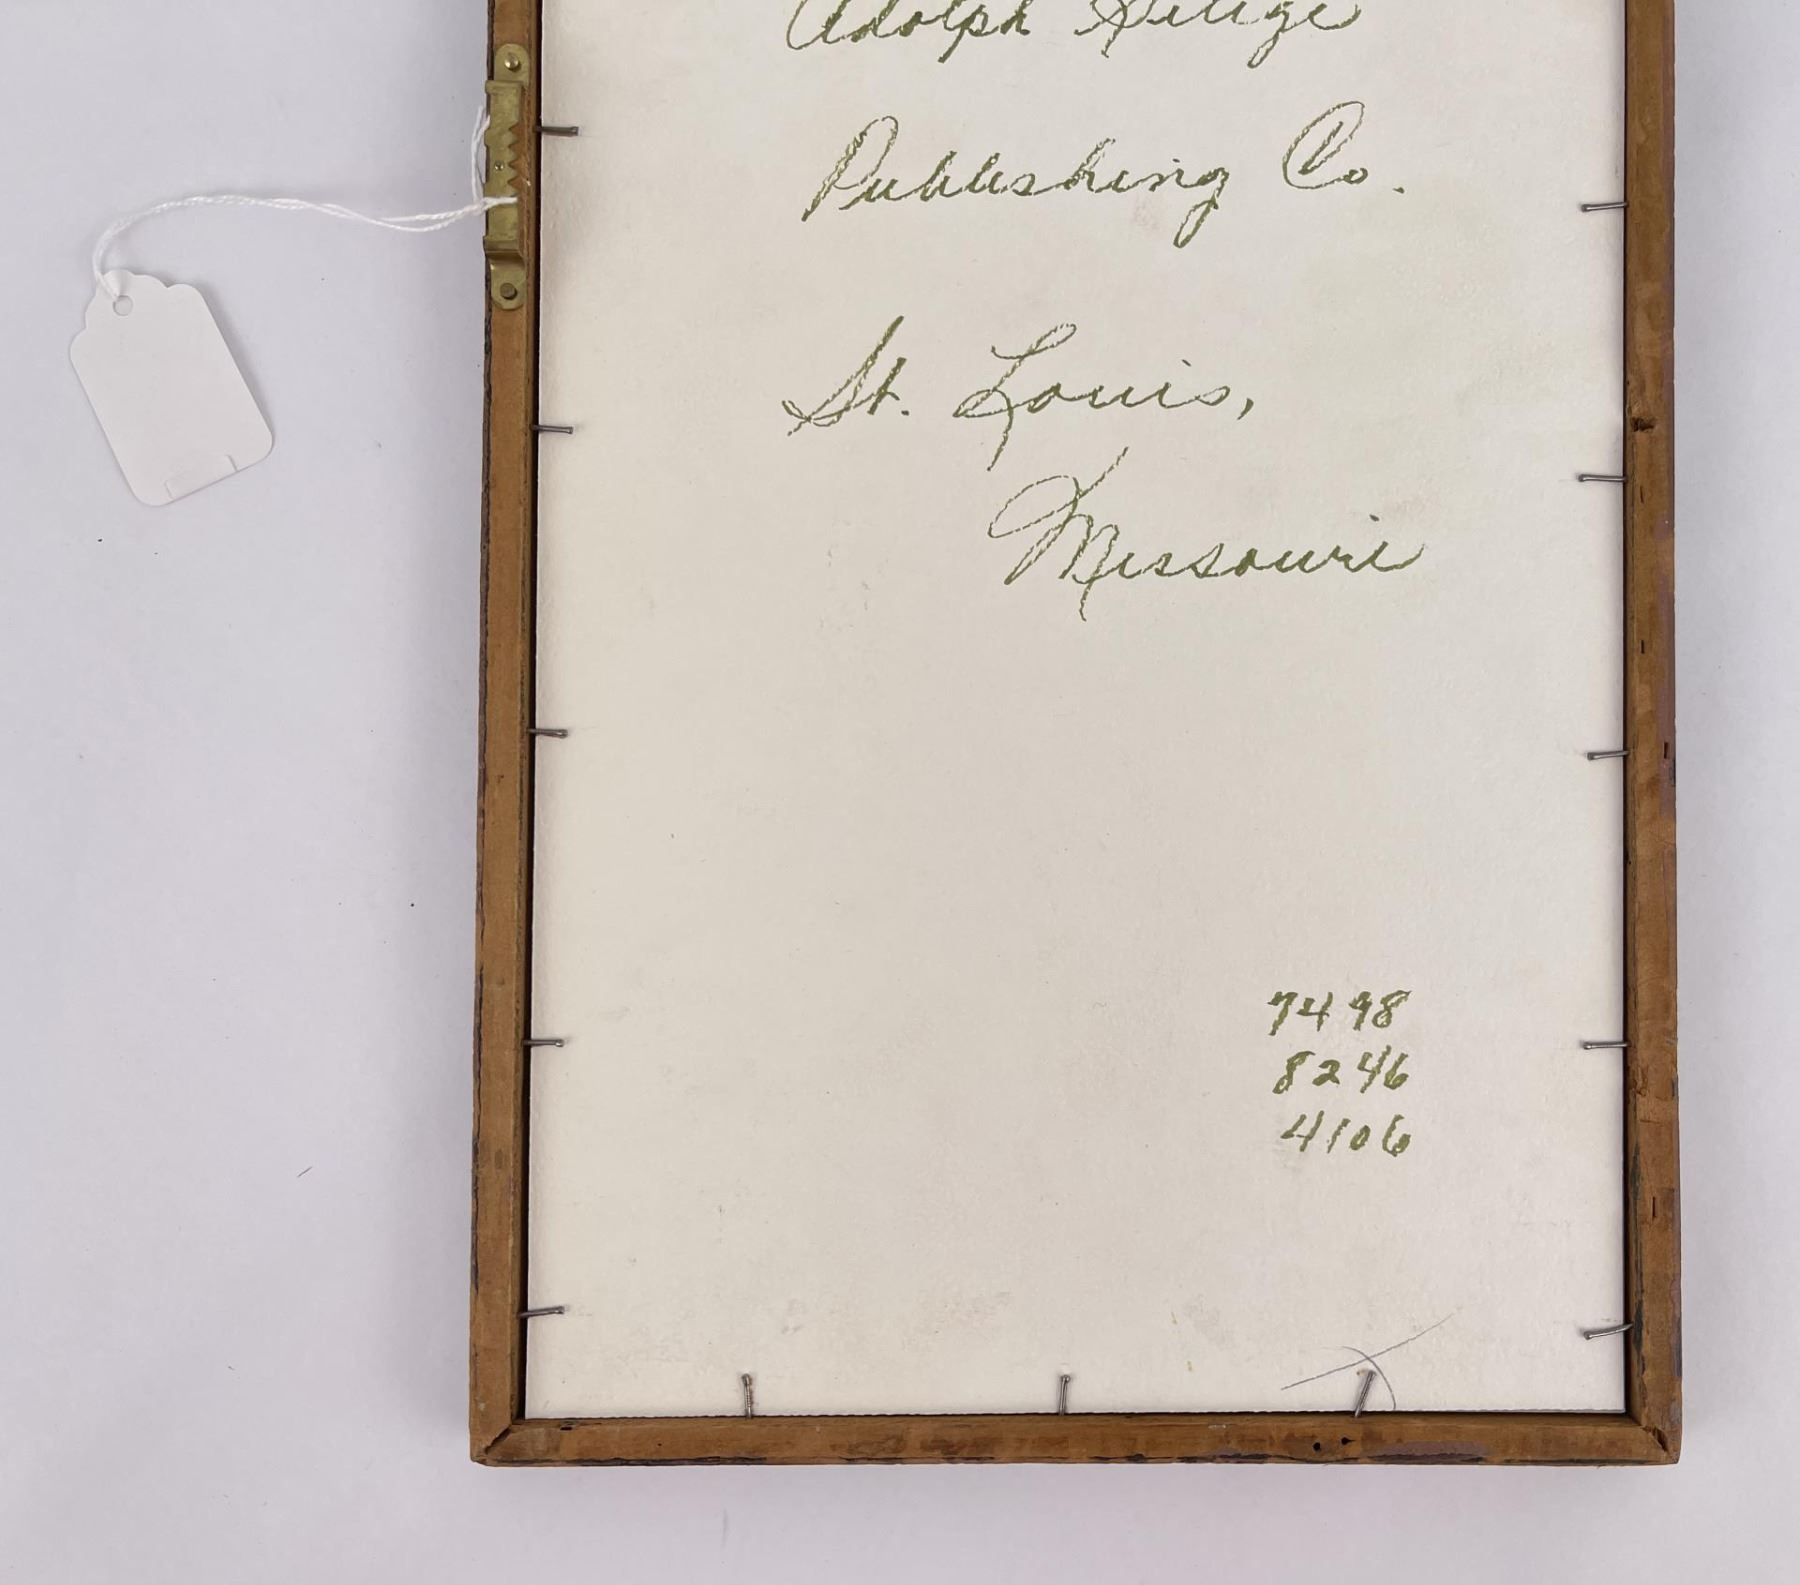 Adolph Selige
Publishing Co.
St. Louis,
Missouri
7498
8246
4106